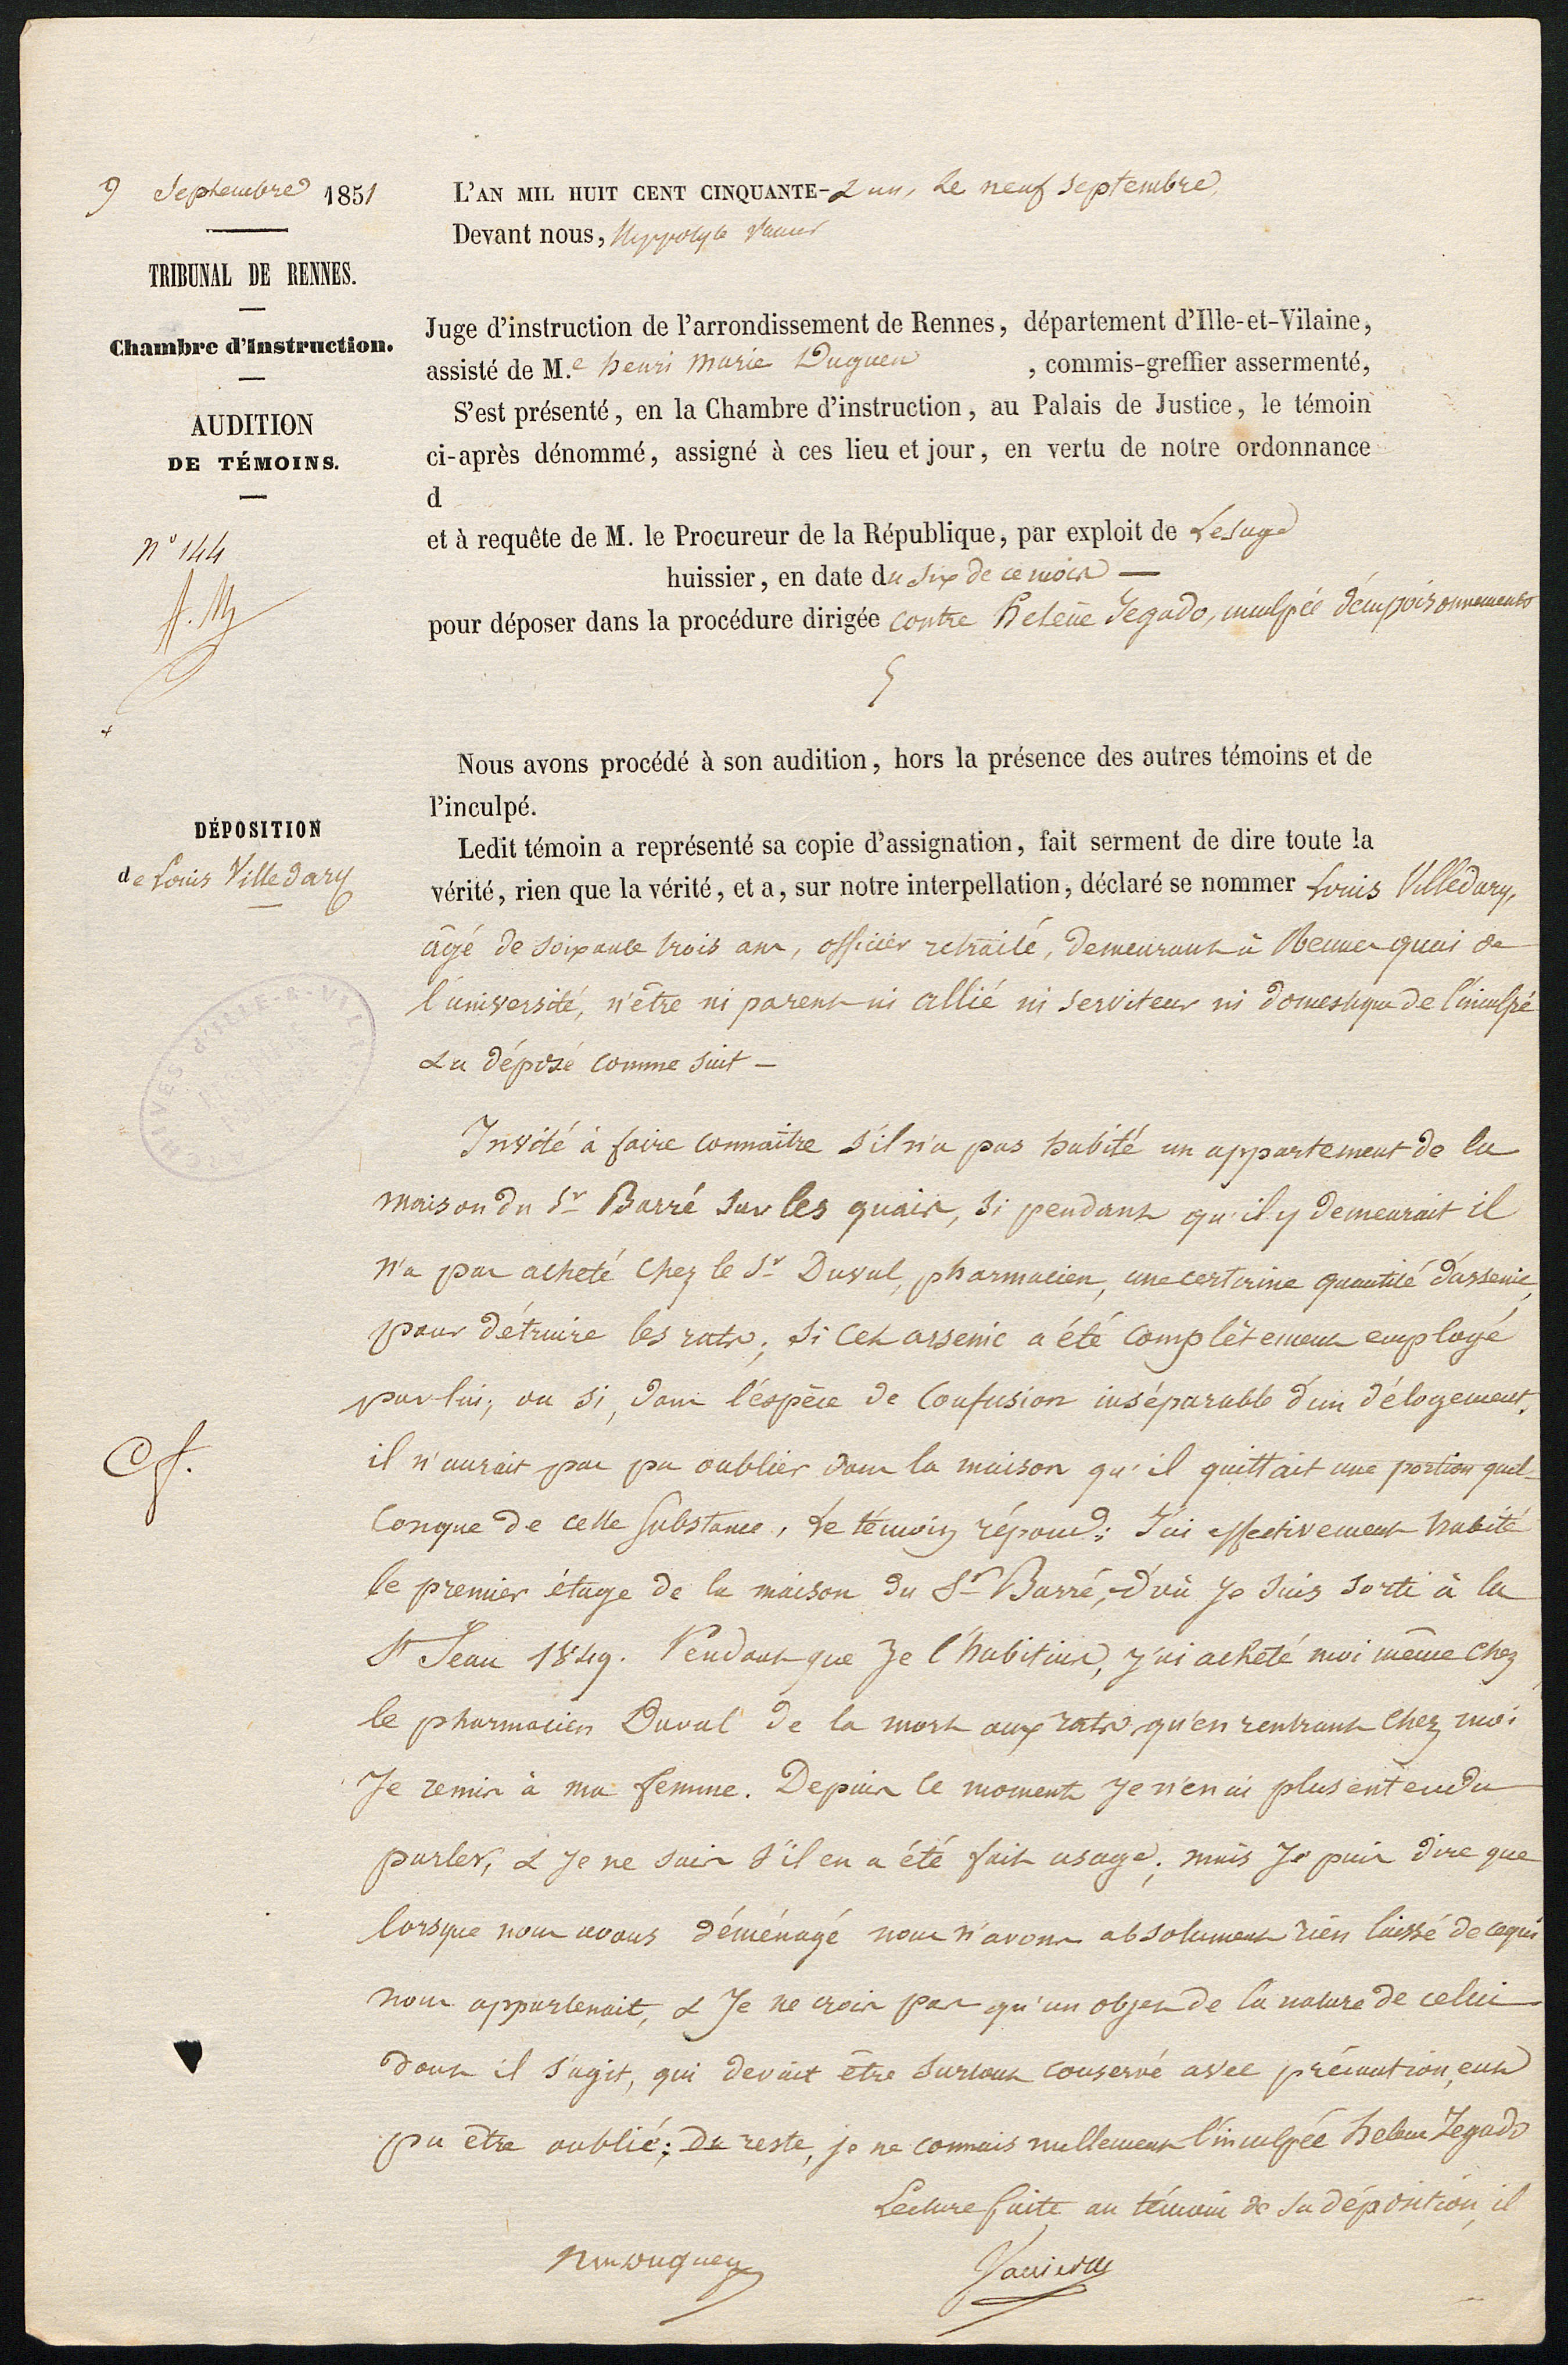 9 Septembre 1851
TRIBUNAL DE RENNES.
Chambre d'Instruction.
AUDITION
DE TÉMOINS.
N° 144
DÉPOSITION
de Louis Villedary
Cf.
L'AN MIL HUIT CENT CINQUANTE-& un, Le neuf Septembre,
Devant nous, Hyppolyte Vannier
Juge d'instruction de l'arrondissement de Rennes, département d'Ille-et-Vilaine,
assisté de M.e henri Marie Duguen , commis-greffier assermenté,
S'est présenté, en la Chambre d'instruction, au Palais de Justice, le témoin
ci-après dénommé, assigné à ces lieu et jour, en vertu de notre ordonnance
d
et à requête de M. le Procureur de la République, par exploit de Lesage
huissier, en date du Six de ce mois —
pour déposer dans la procédure dirigée contre Helène Jegado, inculpée d'empoisonnements
Nous avons procédé à son audition, hors la présence des autres témoins et de
l'inculpé.
Ledit témoin a représenté sa copie d'assignation, fait serment de dire toute la
vérité, rien que la vérité, et a, sur notre interpellation, déclaré se nommer Louis Villedary,
âgé de soixante trois ans, officier retraité, demeurant à Rennes quai de
l'université, n'être ni parent ni allié ni serviteur ni domestique de l'inculpé
& a déposé comme suit –
Invité à faire connaître s'il n'a pas habité un appartement de la
maison du Sr Barré sur les quais, si pendant qu'il y demeurait il
n'a pas acheté chez le Sr Duval, pharmacien, une certaine quantité d'arsenic,
pour détruire les rats; si cet arsenic a été complètement employé
par lui; ou si, dans l'espèce de confusion inséparable d'un délogement,
il n'aurait pas pu oublier dans la maison qu'il quittait une portion quel-
conque de cette substance, Le témoin répond: J'ai effectivement habité
le premier étage de la maison du Sr Barré, d'où je suis sorti à la
St Jean 1849. Pendant que je l'habitais, j'ai acheté moi même chez
le pharmacien Duval de la mort aux rats, qu'en rentrant chez moi
Je remis à ma femme. Depuis ce moment je n'en ai plus entendu
parler, & je ne sais s'il en a été fait usage; mais Je puis dire que
lorsque nous avons déménagé nous n'avons absolument rien laissé de ce qui
nous appartenait, & Je ne crois pas qu'un objet de la nature de celui
dont il s'agit, qui devait être surtout conservé avec précaution, eut
pu être oublié; Du reste, je ne connais nullement l'inculpée helene Jegado
Lecture faite au témoin de sa déposition, il
Duguen
Vannier